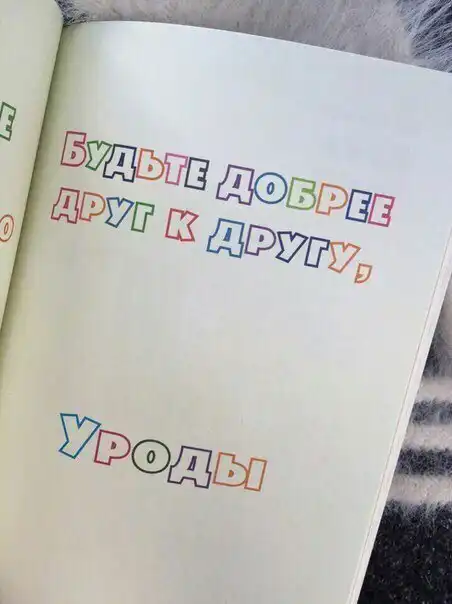 Будьте добрее
друг к другу,
Уроды
е
о